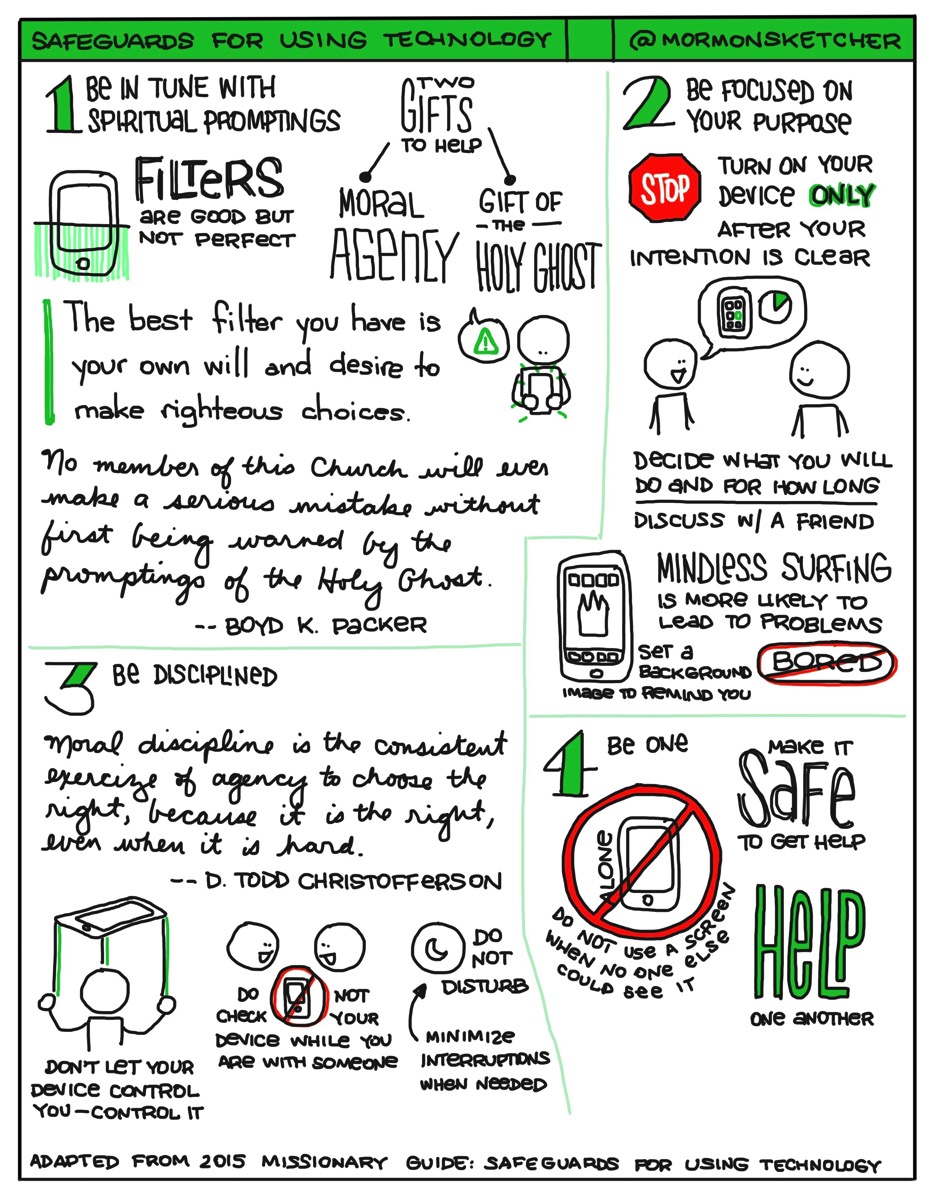 SAFEGUARDS FOR USING TECHNOLOGY
@MORMONSKETCHER
1 BE IN TUNE WITH
SPIRITUAL PROMPTINGS
FILTERS
ARE GOOD BUT
NOT PERFECT
TWO
GIFTS
TO HELP
MORAL
AGENCY
GIFT OF
THE
HOLY GHOST
The best filter you have is
your own will and desire to
make righteous choices.
No member of this Church will ever
make a serious mistake without
first being warned by the
promptings of the Holy Ghost.
-- BOYD K. PACKER
2 BE FOCUSED ON
YOUR PURPOSE
STOP
TURN ON YOUR
DEVICE ONLY
AFTER YOUR
INTENTION IS CLEAR
DECIDE WHAT YOU WILL
DO AND FOR HOW LONG
DISCUSS W/ A FRIEND
MINDLESS SURFING
IS MORE LIKELY TO
LEAD TO PROBLEMS
SET A
BACKGROUND
IMAGE TO REMIND YOU
BORED
3 BE DISCIPLINED
Moral discipline is the consistent
exercize of agency to choose the
right, because it is the right,
even when it is hard.
-- D. TODD CHRISTOFFERSON
DON'T LET YOUR
DEVICE CONTROL
YOU—CONTROL IT
DO NOT
CHECK YOUR
DEVICE WHILE YOU
ARE WITH SOMEONE
DO
NOT
DISTURB
MINIMIZE
INTERRUPTIONS
WHEN NEEDED
4 BE ONE
ALONE
DO NOT USE A SCREEN
WHEN NO ONE ELSE
COULD SEE IT
MAKE IT
SAFE
TO GET HELP
HELP
ONE ANOTHER
ADAPTED FROM 2015 MISSIONARY GUIDE: SAFEGUARDS FOR USING TECHNOLOGY